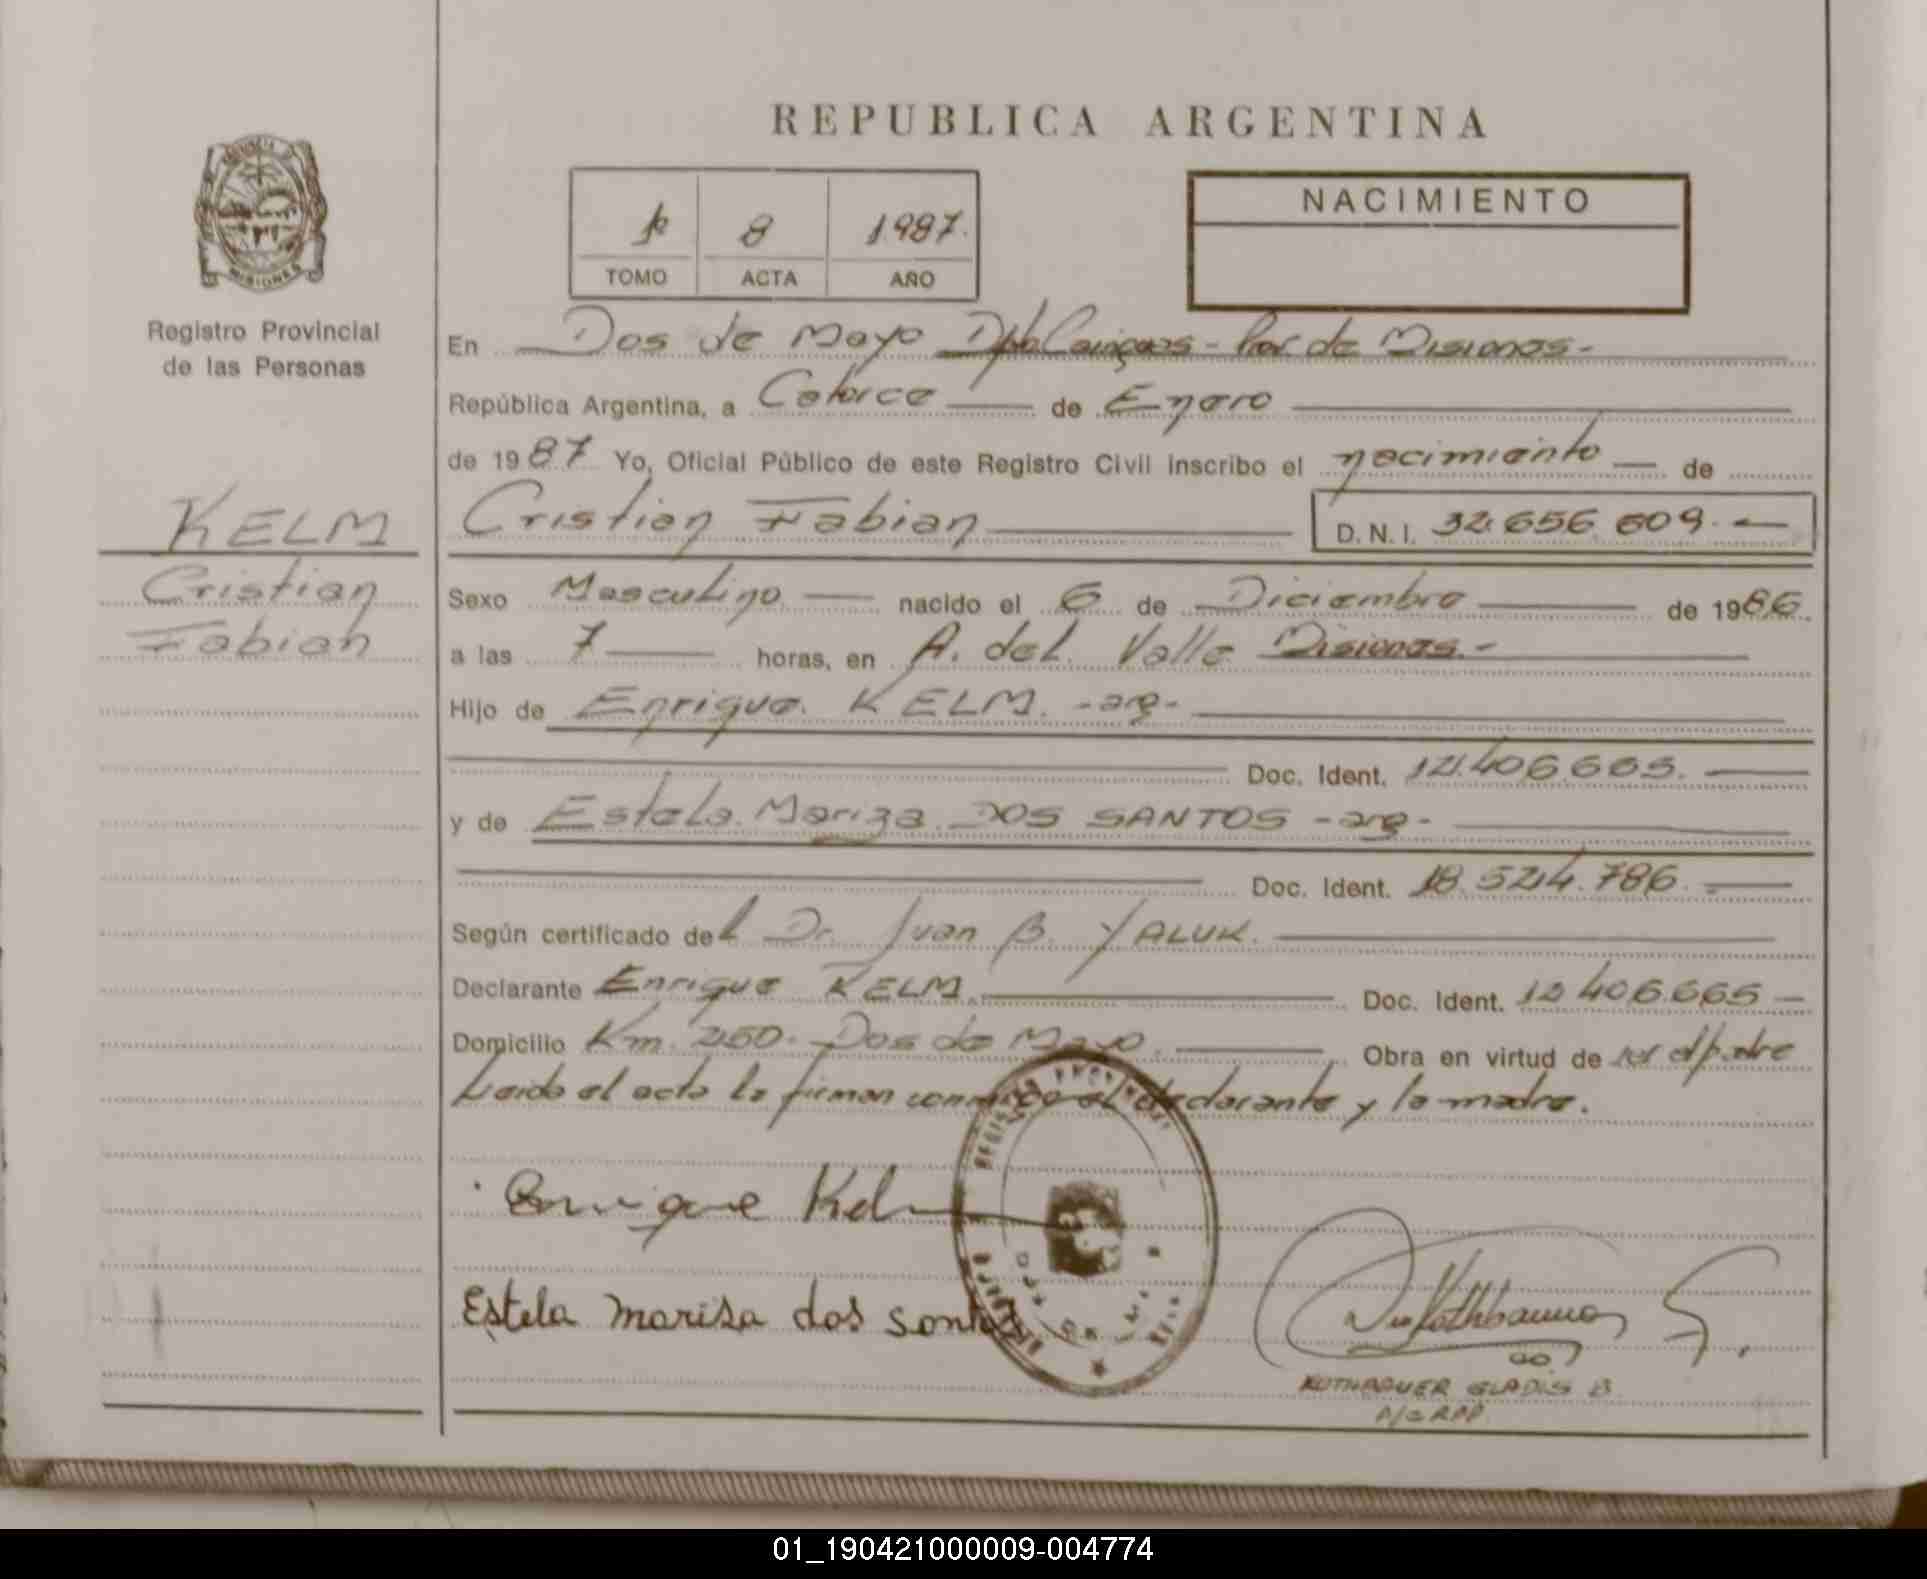 REPUBLICA ARGENTINA
1º 8 1.987.
TOMO ACTA AÑO
NACIMIENTO
MISIONES
Registro Provincial
de las Personas
KELM
Cristian
Fabian
En Dos de Mayo Dpto Cainguas - Prov. de Misiones -
República Argentina, a Catorce de Enero
de 1987 Yo, Oficial Público de este Registro Civil inscribo el nacimiento de
Cristian Fabian D.N.I. 32.656.609.
Sexo Masculino nacido el 6 de Diciembre de 1986.
a las 7 horas, en A. del Valle Misiones. -
Hijo de Enrique KELM. - arg -
Doc. Ident.
y de Estela Mariza DOS SANTOS - arg -
Doc. Ident. 18.544.786.
Según certificado del Dr. Juan B. YALUK.
Declarante Enrique KELM. Doc. Ident. 12 406.665
Domicilio Km. 250. Dos de Mayo. Obra en virtud de ser el padre
Leido el acta la firman conmigo el declarante y la madre.
Enrique Kelm
Estela marisa dos santos
KOTHBAUER GLADIS B